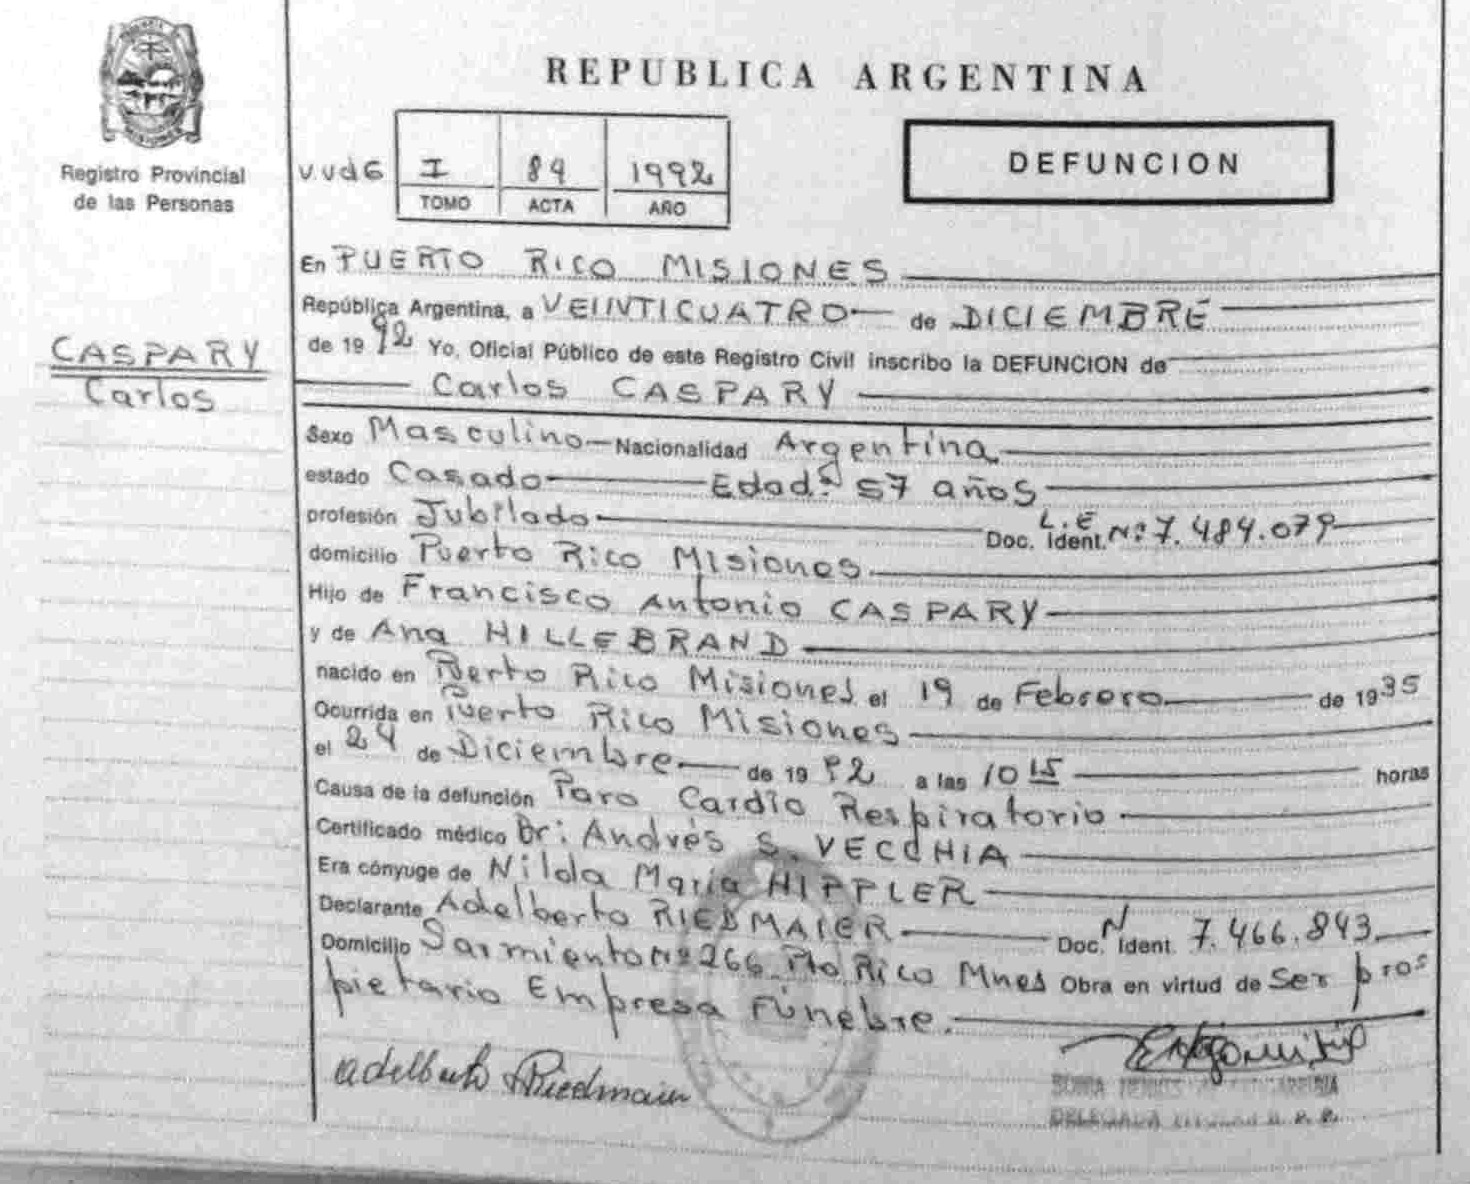 REPUBLICA ARGENTINA
Registro Provincial
de las Personas
I 89 1992
TOMO ACTA AÑO
DEFUNCION
CASPARY
Carlos
En PUERTO RICO MISIONES
República Argentina, a VEINTICUATRO de DICIEMBRE
de 1992 Yo, Oficial Público de este Registro Civil inscribo la DEFUNCION de
Carlos CASPARY
Sexo Masculino Nacionalidad Argentina
estado Casado Edad: 57 años
profesión Jubilado Doc. Ident. L.E Nº: 7.484.079
domicilio Puerto Rico Misiones
Hijo de Francisco Antonio CASPARY
y de Ana HILLEBRAND
nacido en Puerto Rico Misiones el 19 de Febrero de 1935
Ocurrida en Puerto Rico Misiones
el 24 de Diciembre de 1992 a las 10 15 horas
Causa de la defunción Paro Cardio Respiratorio
Certificado médico Dr: Andrés S. VECCHIA
Era cónyuge de Nilda María HIPPLER
Declarante Adelberto RIEDMAIER Doc. N Ident. 7.466.843
Domicilio Sarmiento Nº 266 Pto Rico Mnes Obra en virtud de Ser pro=
pietario Empresa Fúnebre.
Adelberto Riedmaier